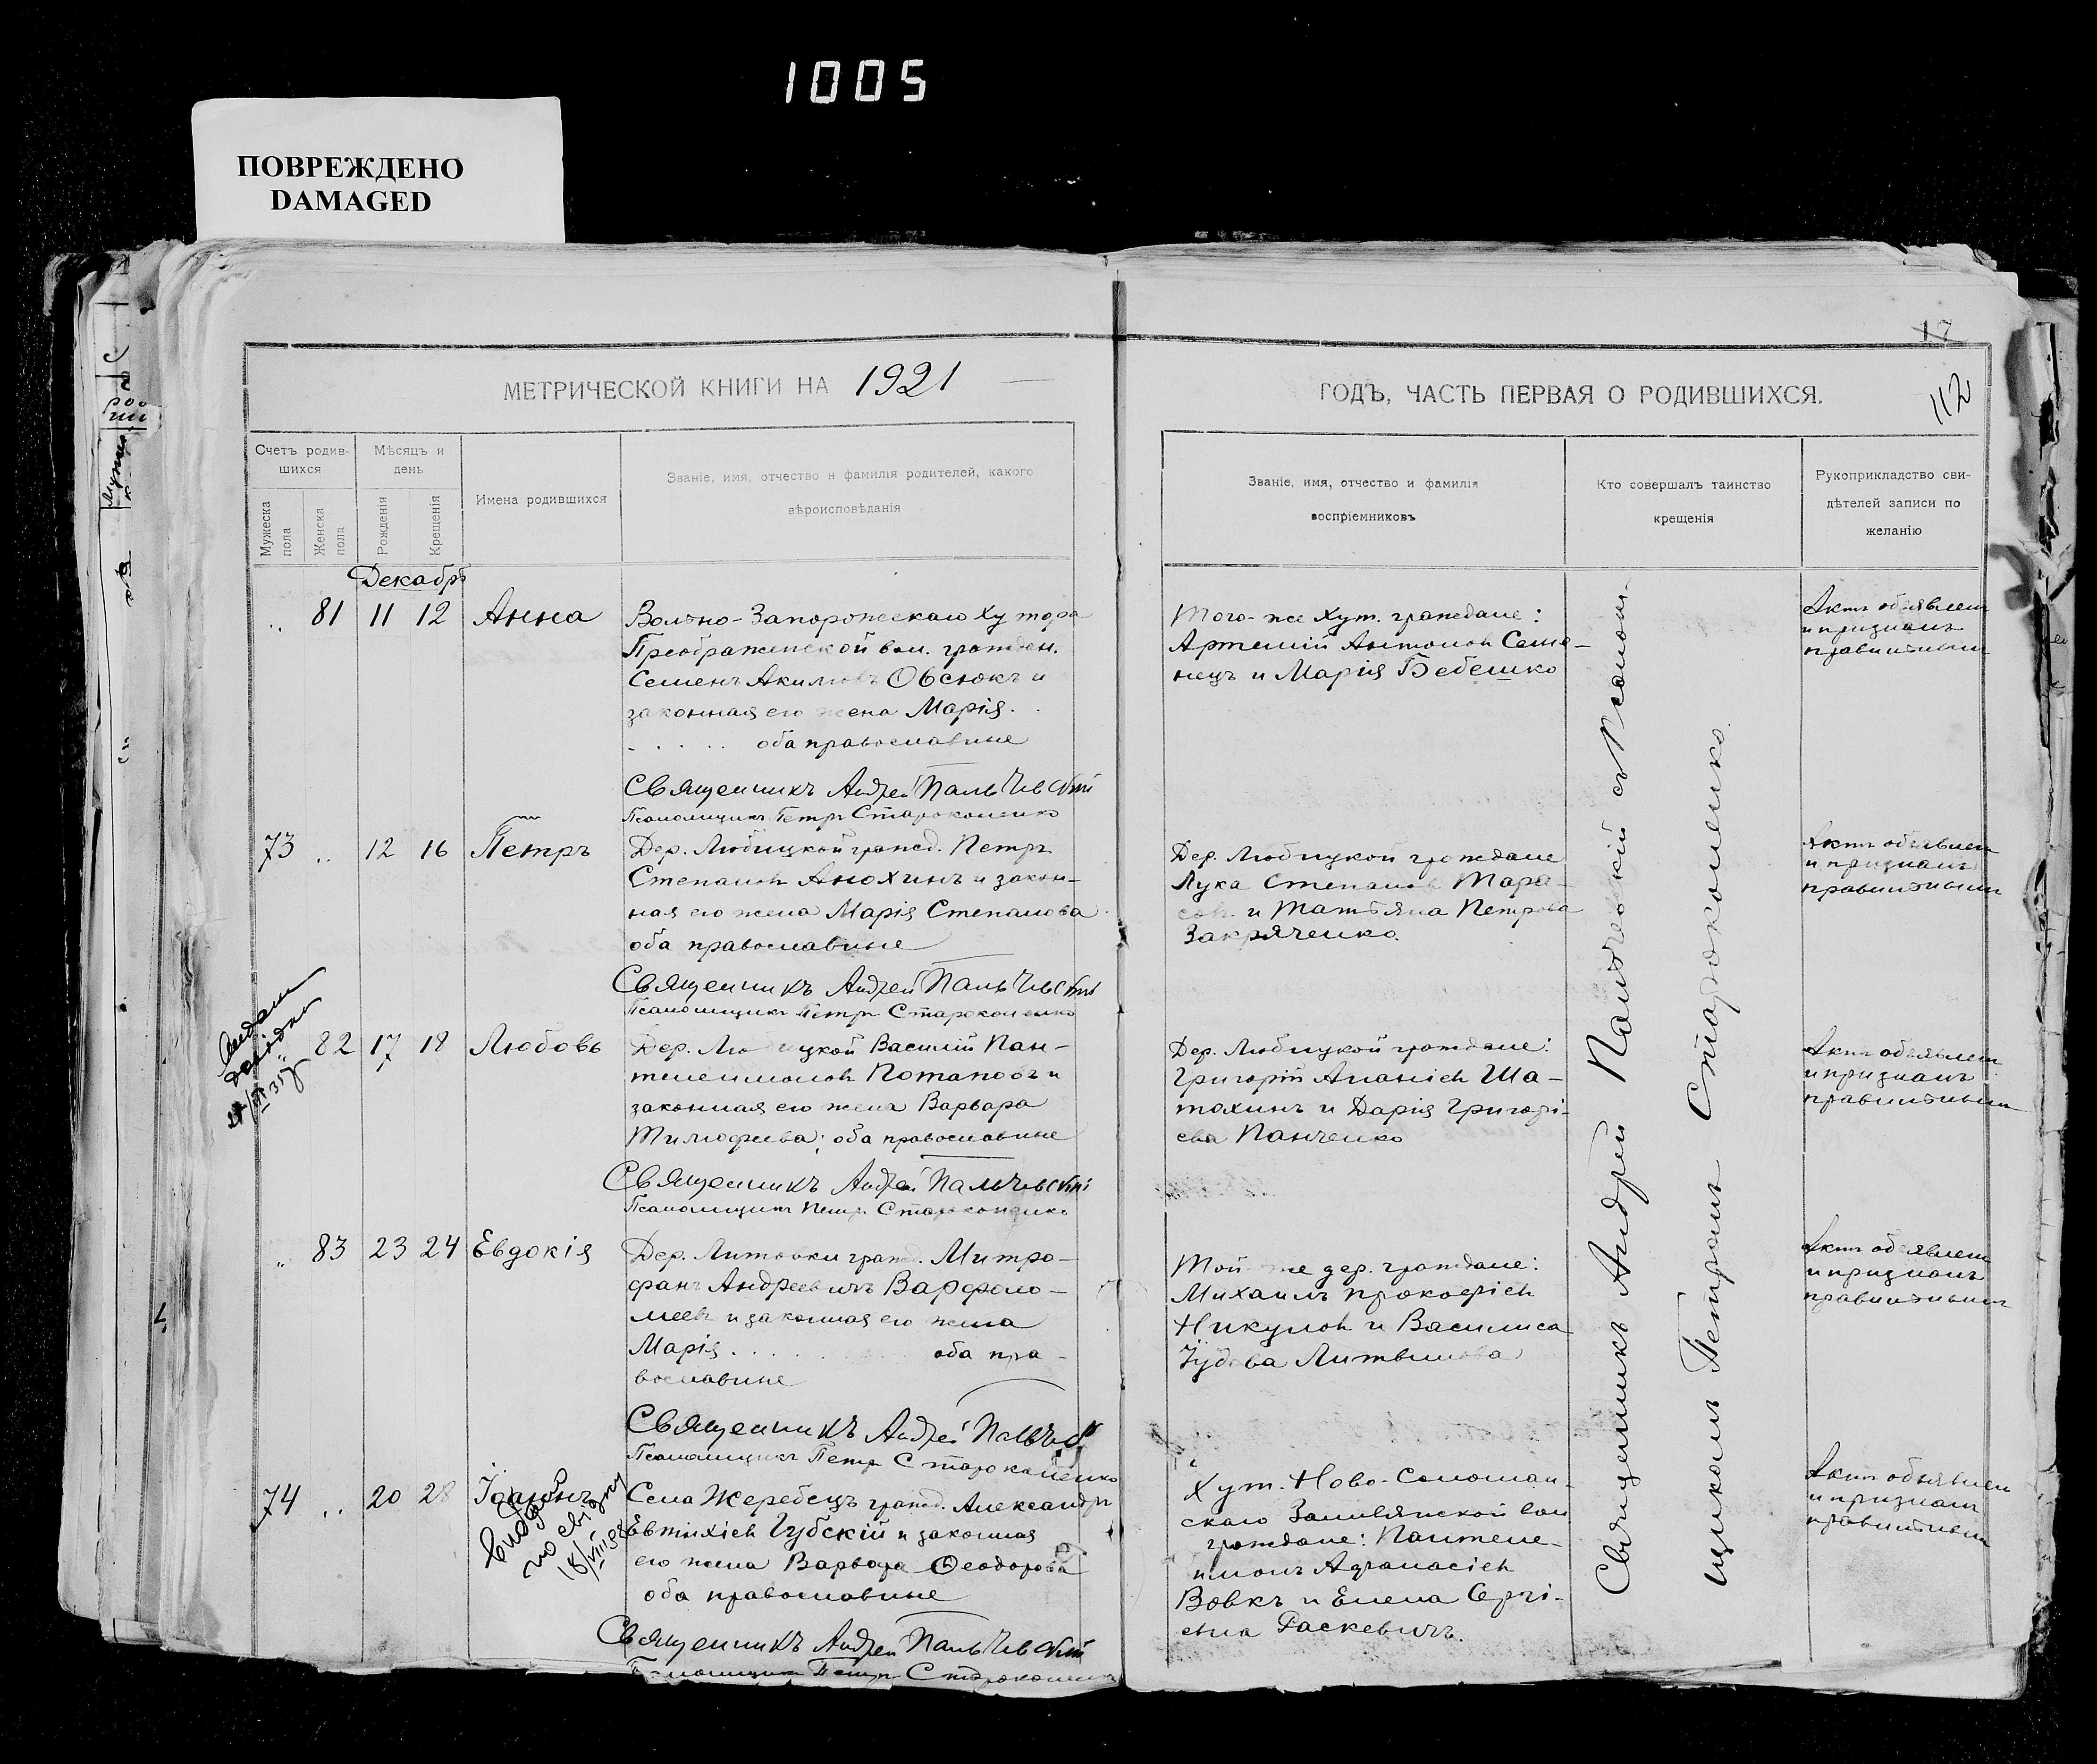 1005
ПОВРЕЖДЕНО
DAMAGED
17
112
МЕТРИЧЕСКОЙ КНИГИ НА 1921
ГОДЪ, ЧАСТЬ ПЕРВАЯ О РОДИВШИХСЯ.
Счетъ родив-
шихся
Мужеска
пола
Женска
пола
Мѣсяцъ и
день
Рожденія
Крещенія
Имена родившихся
Званіе, имя, отчество и фамилія родителей, какого
вѣроисповѣданія
Званіе, имя, отчество и фамилія
воспріемниковъ
Кто совершалъ таинство
крещенія
Рукоприкладство сви-
дѣтелей записи по
желанію
Декабрь
81 11 12 Анна
Вольно-Запорожскаго Хутора
Преображенской вол. граждан.
Семенъ Акимовъ Овсюкъ и
законная его жена Марія.
оба православные
Священникъ Андрей Пальчевскій
Псаломщикъ Петръ Староконенко
Того-же Хут. граждане:
Артемій Антоновъ Семе-
нецъ и Марія Бебешко
Актъ объявленъ
и признанъ
правильнымъ
73 12 16 Петръ
Дер. Любицкой гражд. Петръ
Степановъ Анохинъ и закон-
ная его жена Марія Степанова
оба православные
Священникъ Андрей Пальчевскій
Псаломщикъ Петръ Староконенко
Дер. Любицкой граждане
Лука Степановъ Тара-
совъ и Татьяна Петрова
Закряченко.
Актъ объявленъ
и признанъ
правильнымъ
82 17 18 Любовь
Дер. Любицкой Василій Пан-
телеимоновъ Потаповъ и
законная его жена Варвара
Тимофеева; оба православные
Священникъ Андрей Пальчевскій
Псаломщикъ Петръ Староконенко
Дер. Любицкой граждане:
Григорій Ананіевъ Ша-
тохинъ и Дарія Григорі-
ева Панченко
Актъ объявленъ
и признанъ
правильнымъ
83 23 24 Евдокія
Дер. Литовки гражд. Митро-
фанъ Андреевичъ Варфоло-
меевъ и законная его жена
Марія . . . оба пра-
вославные
Священникъ Андрей
Псаломщикъ Петръ Староконенко
Той же дер. граждане:
Михаилъ Прокофіевъ
Никуловъ и Василиса
Литвинова
Актъ объявленъ
и признанъ
правильнымъ
74 20 28 Іоаннъ
Села Жеребецъ гражд. Александръ
Евтихіевъ Губскій и законная
его жена Варвара Ѳеодорова
оба православные
Священникъ Андрей Пальчевскій
Псаломщикъ Петръ Староконенко
Хут. Ново-
скаго вол
граждане: Пантеле-
имонъ Афанасіевъ
Вовкъ и Елена Сергі-
евна Раскевичъ.
Актъ объявленъ
и признанъ
правильнымъ
Священникъ Андрей Пальчевскій съ Псалом-
щикомъ Петромъ Староконенко